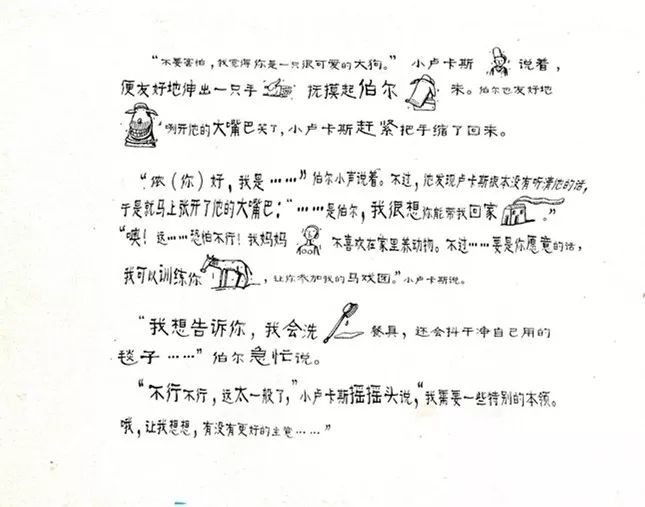 “不要害怕，我觉得你是一只很可爱的大狗。” 小卢卡斯 说着，
便友好地伸出一只手 抚摸起伯尔 来。伯尔也友好地
咧开他的大嘴巴笑了，小卢卡斯赶紧把手缩了回来。
“侬（你）好，我是……” 伯尔小声说着。不过，他发现卢卡斯根本没有听清他的话，
于是就马上张开了他的大嘴巴：“……是伯尔，我很想你能带我回家 。”
“噢！这……恐怕不行！我妈妈 不喜欢在家里养动物。不过……要是你愿意的话，
我可以训练你 ，让你参加我的马戏团。”小卢卡斯说。
“我想告诉你，我会洗 餐具，还会抖干净自己用的
毯子……” 伯尔急忙说。
“不行不行，这太一般了，”小卢卡斯摇摇头说，“我需要一些特别的本领。
哦，让我想想，有没有更好的主意……”